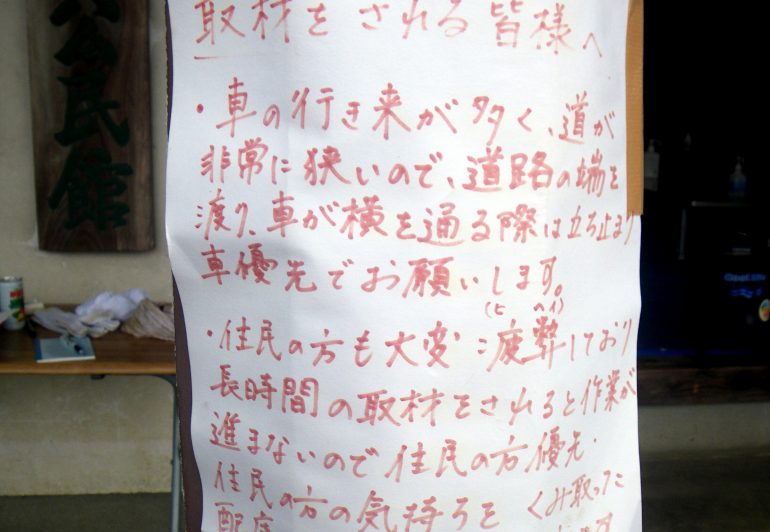 公民館
取材をされる皆様へ
・車の行き来が多く、道が
非常に狭いので、道路の端を
渡り、車が横を通る際は立ち止まり
車優先でお願いします。
(ヒ ヘイ)
・住民の方も大変に疲弊しており
長時間の取材をされると作業が
進まないので住民の方優先・
住民の方の気持ちを くみ取った
配慮